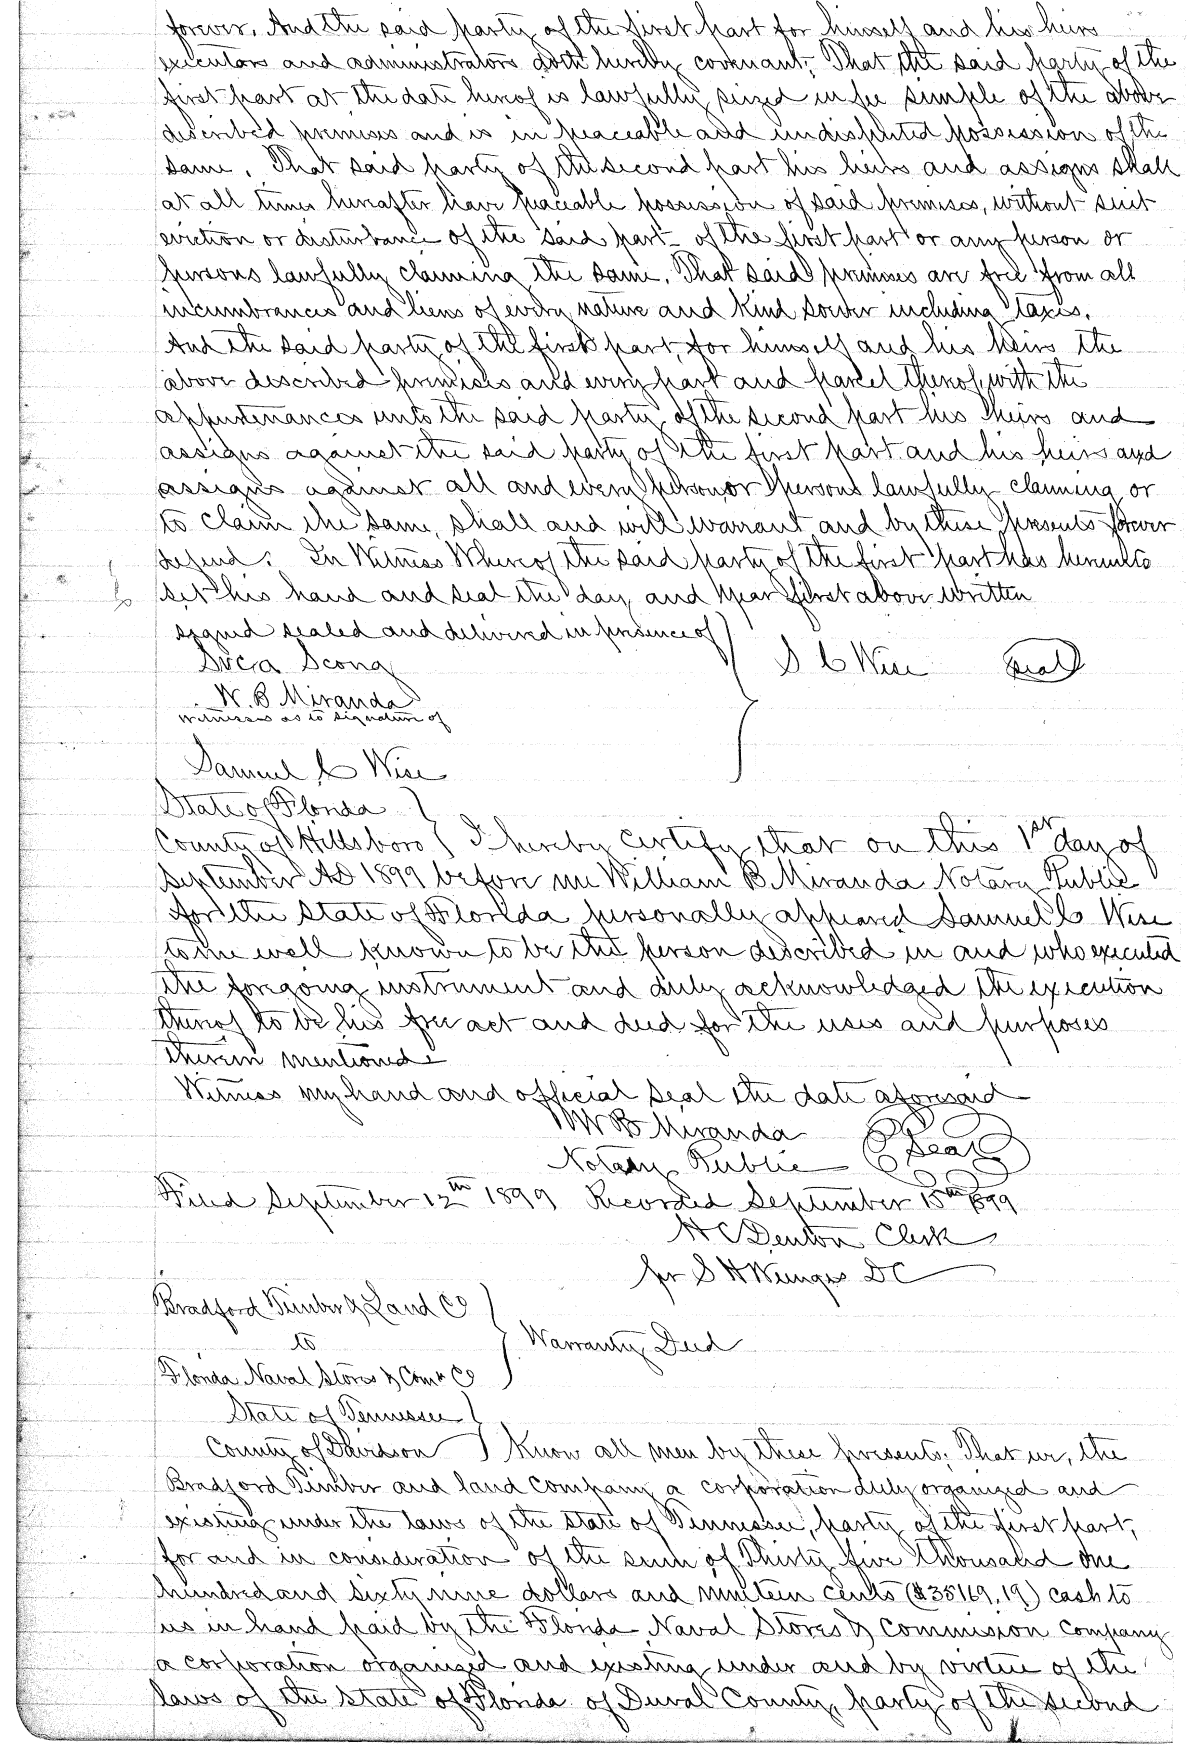 forever. And the said party of the first part for himself and his heirs
executors and administrators doth hereby covenant; That the said party of the
first part at the date hereof is lawfully seized in fee simple of the above
described premises and is in peaceable and undisputed possession of the
same. That said party of the second part his heirs and assigns shall
at all times hereafter have peaceable possession of said premises, without suit
eviction or disturbance of the said part_ of the first part or any person or
persons lawfully claiming the same. That said premises are free from all
incumbrances and liens of every nature and kind soever including taxes.
And the said party of the first part, for himself and his heirs the
above described premises and every part and parcel thereof, with the
appurtenances unto the said party of the second part his heirs and
assigns against the said party of the first part and his heirs and
assigns against all and every person or persons lawfully claiming or
to claim the same, shall and will warrant and by these presents forever
defend. In Witness Whereof the said party of the first part has hereunto
set his hand and seal the day and year first above written
signed sealed and delivered in presence of
S C Wise Seal
W. B Miranda
Witnesses as to signature of
Samuel C Wise
State of Florida
County of Hillsboro I hereby certify that on this 1st day of
September AD 1899 before me William B. Miranda Notary Public
for the State of Florida personally appeared Samuel C Wise
to me well known to be the person described in and who executed
the foregoing instrument and duly acknowledged the execution
thereof to be his free act and deed for the uses and purposes
therein mentioned
Witness my hand and official seal the date aforesaid
W B Miranda Seal
Notary Public
Filed September 12th 1899 Recorded September 15th 1899
H C Denton Clerk
per S H DC
Bradford Timber & Land Co
to
Warranty Deed
Florida Naval Stores & Com Co
State of Tennessee
County of Davidson Know all men by these presents; That we, the
Bradford Timber and land Company a corporation duly organized and
existing under the laws of the state of Tennessee, party of the first part,
for and in consideration of the sum of Thirty five thousand one
hundred and sixty nine dollars and nineteen cents ($35169.19) cash to
us in hand paid by the Florida Naval Stores & Commision Company
a corporation organized and existing under and by virtue of the
laws of the state of Florida of Duval County, party of the second